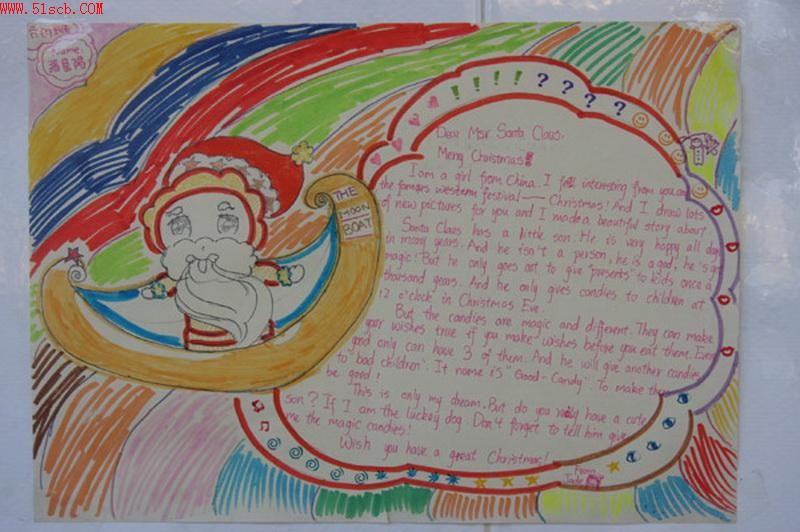 www.51scb.com
Name
THE
MOON
BOAT
! ! ! ! ? ? ? ?
Dear Msr Santa Claus,
Merry Christmas!
I am a girl from China. I fell interesting from you and
the famous western festival —— Christmas! And I draw lots
of new pictures for you and I made a beautiful story about
Santa Claus has a little son. He is very happy all day
in many years. And he isn't a person, he is a god, he's got
magic! But he only goes out to give "presents" to kids once a
thousand years. And he only gives candies to children at
12 o'clock in Christmas Eve.
But the candies are magic and different. They can make
your wishes true if you make wishes before you eat them. Even
good only can have 3 of them. And he will give another candies
to "bad children". It name is "Good-Candy". To make them
be good!
This is only my dream. But do you really have a cute
son? If I am the luckey dog. Don't forget to tell him give
me the magic candies!
Wish you have a great Christmas!
From
Jade